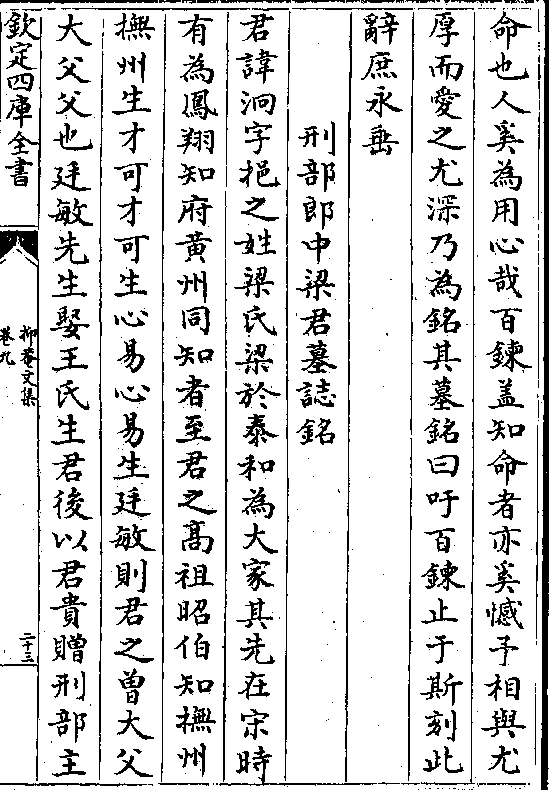 命也人奚為用心哉百鍊盖知命者亦奚憾予相與尤
厚而愛之尤深乃為銘其墓銘曰吁百鍊止于斯刻此
辭庶永垂
刑部郎中梁君墓誌銘
君諱泂字挹之姓梁氏梁於泰和為大家其先在宋時
有為鳳翔知府黄州同知者至君之髙祖昭伯知撫州
撫州生才可才可生心易心易生廷敏則君之曾大父
大父父也廷敏先生娶王氏生君後以君貴贈刑部主
欽定四庫全書
抑菴文集
卷九
二十三